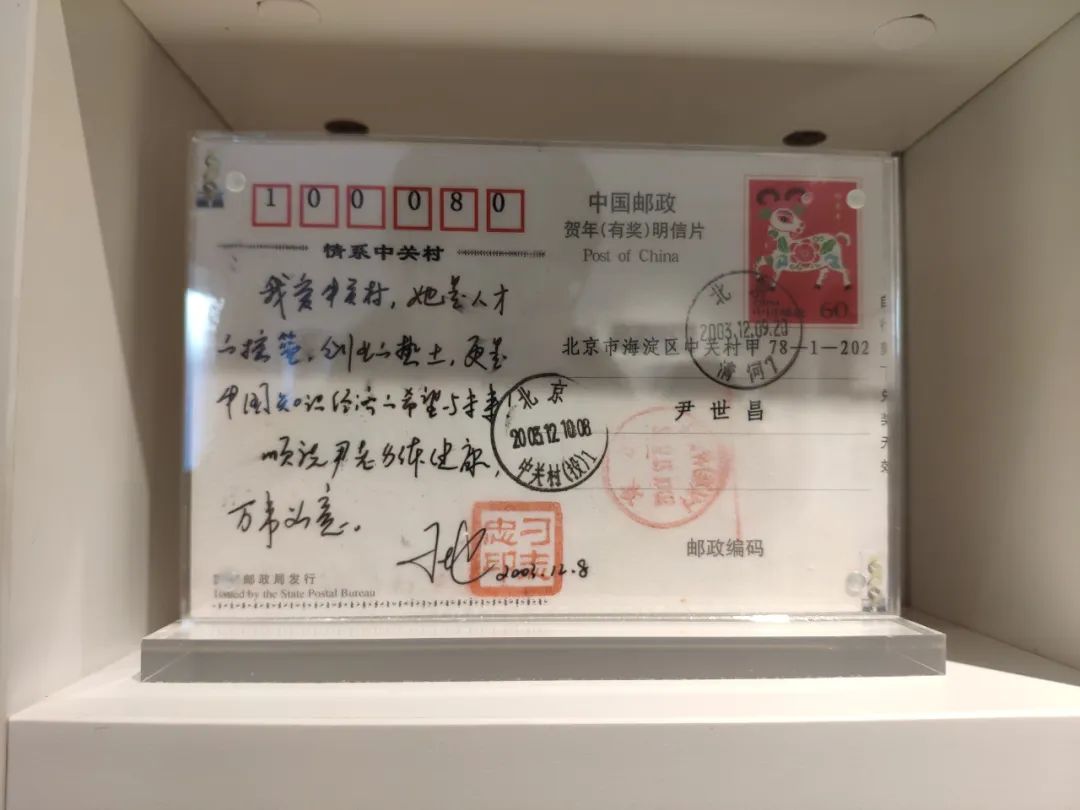 100080
中国邮政
贺年(有奖)明信片
Post of China
情系中关村
我爱中关村，她是人才
的摇篮，创业的热土，更是
中国知识经济的希望与未来！
顺祝尹老身体健康，
万事如意。
2003.12.8
60
北京
2003.12.09.20
清河
北京市海淀区中关村甲 78-1-202
尹世昌
北京
2003.12.10.08
中关村(投)1
习志
忠印
邮政编码
邮政局发行
Issued by the State Postal Bureau